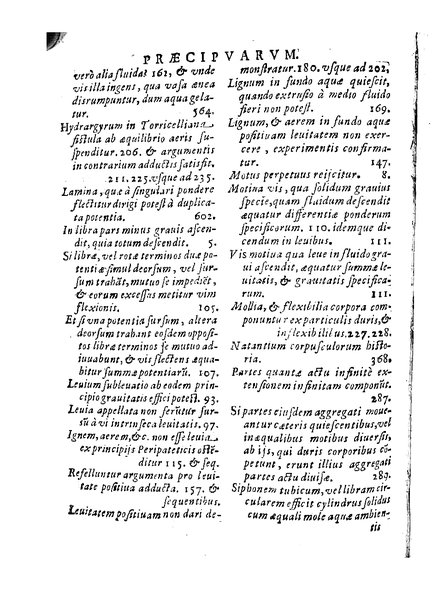 PRÆCIPVARVM.
verò alia fluida. 162, & vnde
vis illa ingens, qua vasa ænea
disrumpuntur, dum aqua gela-
tur. 564.
Hydrargyrum in Torricelliana
fistula ab æquilibrio aeris su-
spenditur. 206. & argumentis
in contrarium adductis satisfit.
211. 225. vsque ad 235.
Lamina, quæ à singulari pondere
flectitur dirigi potest à duplica-
ta potentia. 602.
In libra pars minus grauis ascen-
dit, quia totum descendit. 5.
Si libræ, vel rotæ terminos duæ po-
tentiæ simul deorsum, vel sur-
sum trahāt, mutuo se impediēt,
& eorum excessus metitur vim
flexionis. 105.
Et si vna potentia sursum, altera
deorsum trahant eosdem opposi-
tos libræ terminos se mutuo ad-
iuuabunt, & vis flectens æqua-
bitur summæ potentiarū. 107.
Leuium subleuatio ab eodem prin-
cipio grauitatis effici potest. 93.
Leuia appellata non ferūtur sur-
sū à vi intrinseca leuitatis. 97.
Ignem, aerem, &c. non esse leuia
ex principijs Peripateticis ostē-
ditur 115. & seq.
Refelluntur argumenta pro leui-
tate positiua adducta. 157. &
sequentibus.
Leuitatem positiuam non dari de-
monstratur. 180. vsque ad 202,
Lignum in fundo aquæ quiescit,
quando extrusio à medio fluido
fieri non potest. 169.
Lignum, & aerem in fundo aquæ
positiuam leuitatem non exer-
cere, experimentis confirma-
tur. 147.
Motus perpetuus reijcitur. 8.
Motiua vis, qua solidum grauius
specie, quam fluidum descendit
æquatur differentiæ ponderum
specificorum. 110. idemque di-
cendum in leuibus. 111.
Vis motiua qua leue in fluido gra-
ui ascendit, æquatur summæ le-
uitatis, & grauitatis specifica-
rum. 111.
Mollia, & flexibilia corpora com-
ponuntur ex particulis duris, &
inflexibilius. 227. 228.
Natantium corpusculorum histo-
ria. 368.
Partes quantæ actu infinitè ex-
tensionem infinitam componūt.
287.
Si partes eiusdem aggregati moue-
antur cæteris quiescentibus, vel
inæqualibus motibus diuersis,
ab ijs, qui duris corporibus cō-
petunt, erunt illius aggregati
partes actu diuisæ. 289.
Siphonem tubicum, vel libram cir-
cularem efficit cylindrus solidus
cum æquali mole aquæ ambien-
tis